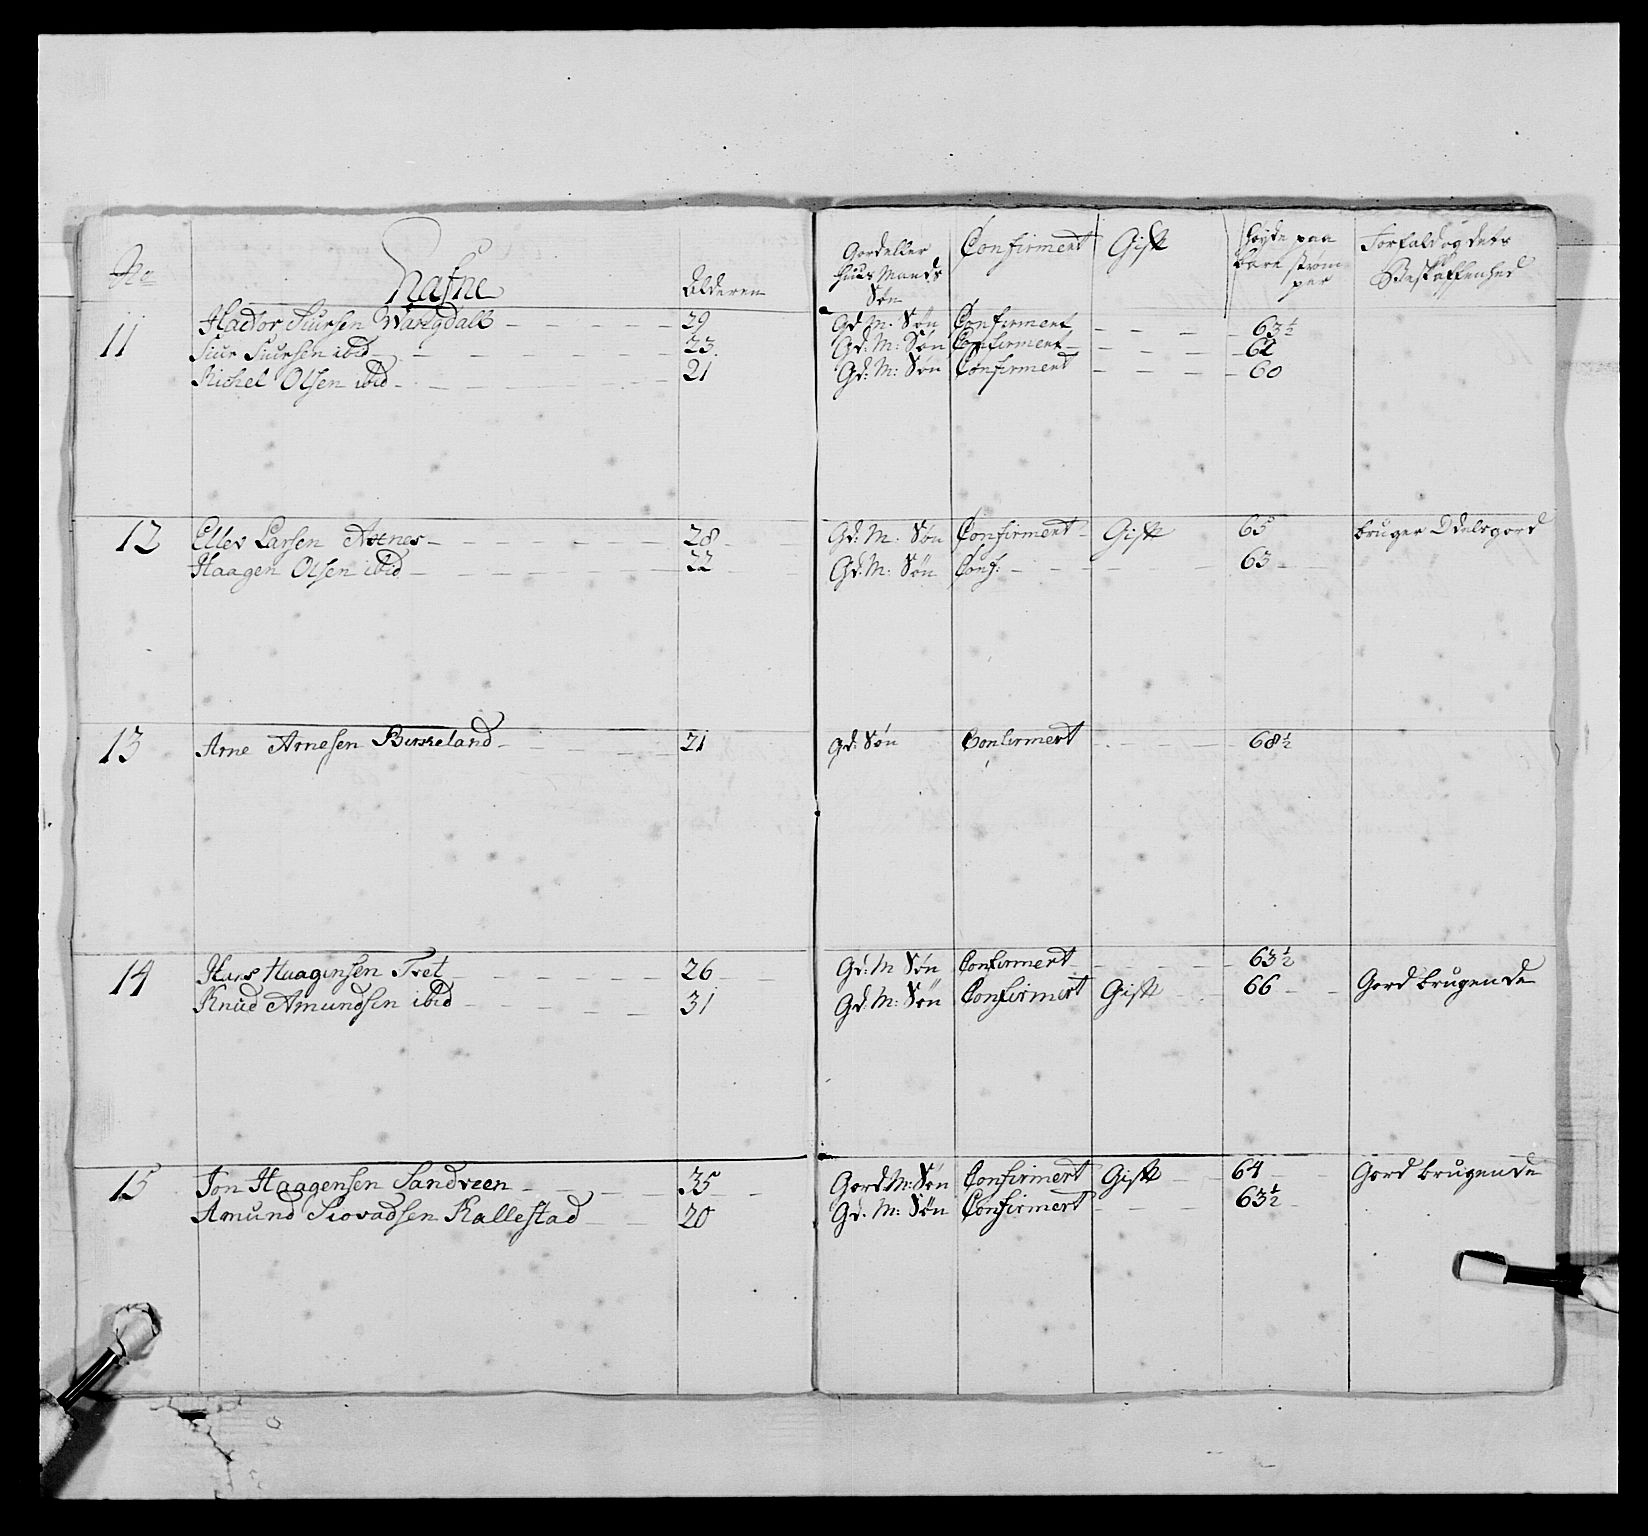 No Nafne Alderen Gord eller Huus Mands Søn Confirmert Gift Høyde paa bare strømper Forfald og dets Beskaffenhed
11 Hactor Siursen Wangdall 29 Gd: M: Søn Confirmert 63½
Siur Siursen ibid 23 Gd: M: Søn Confirmert 62
Michel Olsen ibid 21 Gd: M: Søn Confirmert 60
12 Ellev Larsen Axnes 28 Gd: M: Søn Confirmert Gift 65 bruger Odelsgord
Haagen Olsen ibid 22 Gd: M: Søn Conf: 63
13 Arne Arnesen Birkeland 21 Gd: Søn Confirmert 68½
14 Hans Haagensen Tvet 26 Gd: M Søn Confirmert 63½
Knud Amundsen ibid 31 Gd: M: Søn Confirmert Gift 66 Gord brugende
15 Jon Haagensen Sandveen 35 Gord M: Søn Confirmert Gift 64 Gord brugende
Amund Siovadsen Rallestad 20 Gd. M: Søn Confirmert 63½